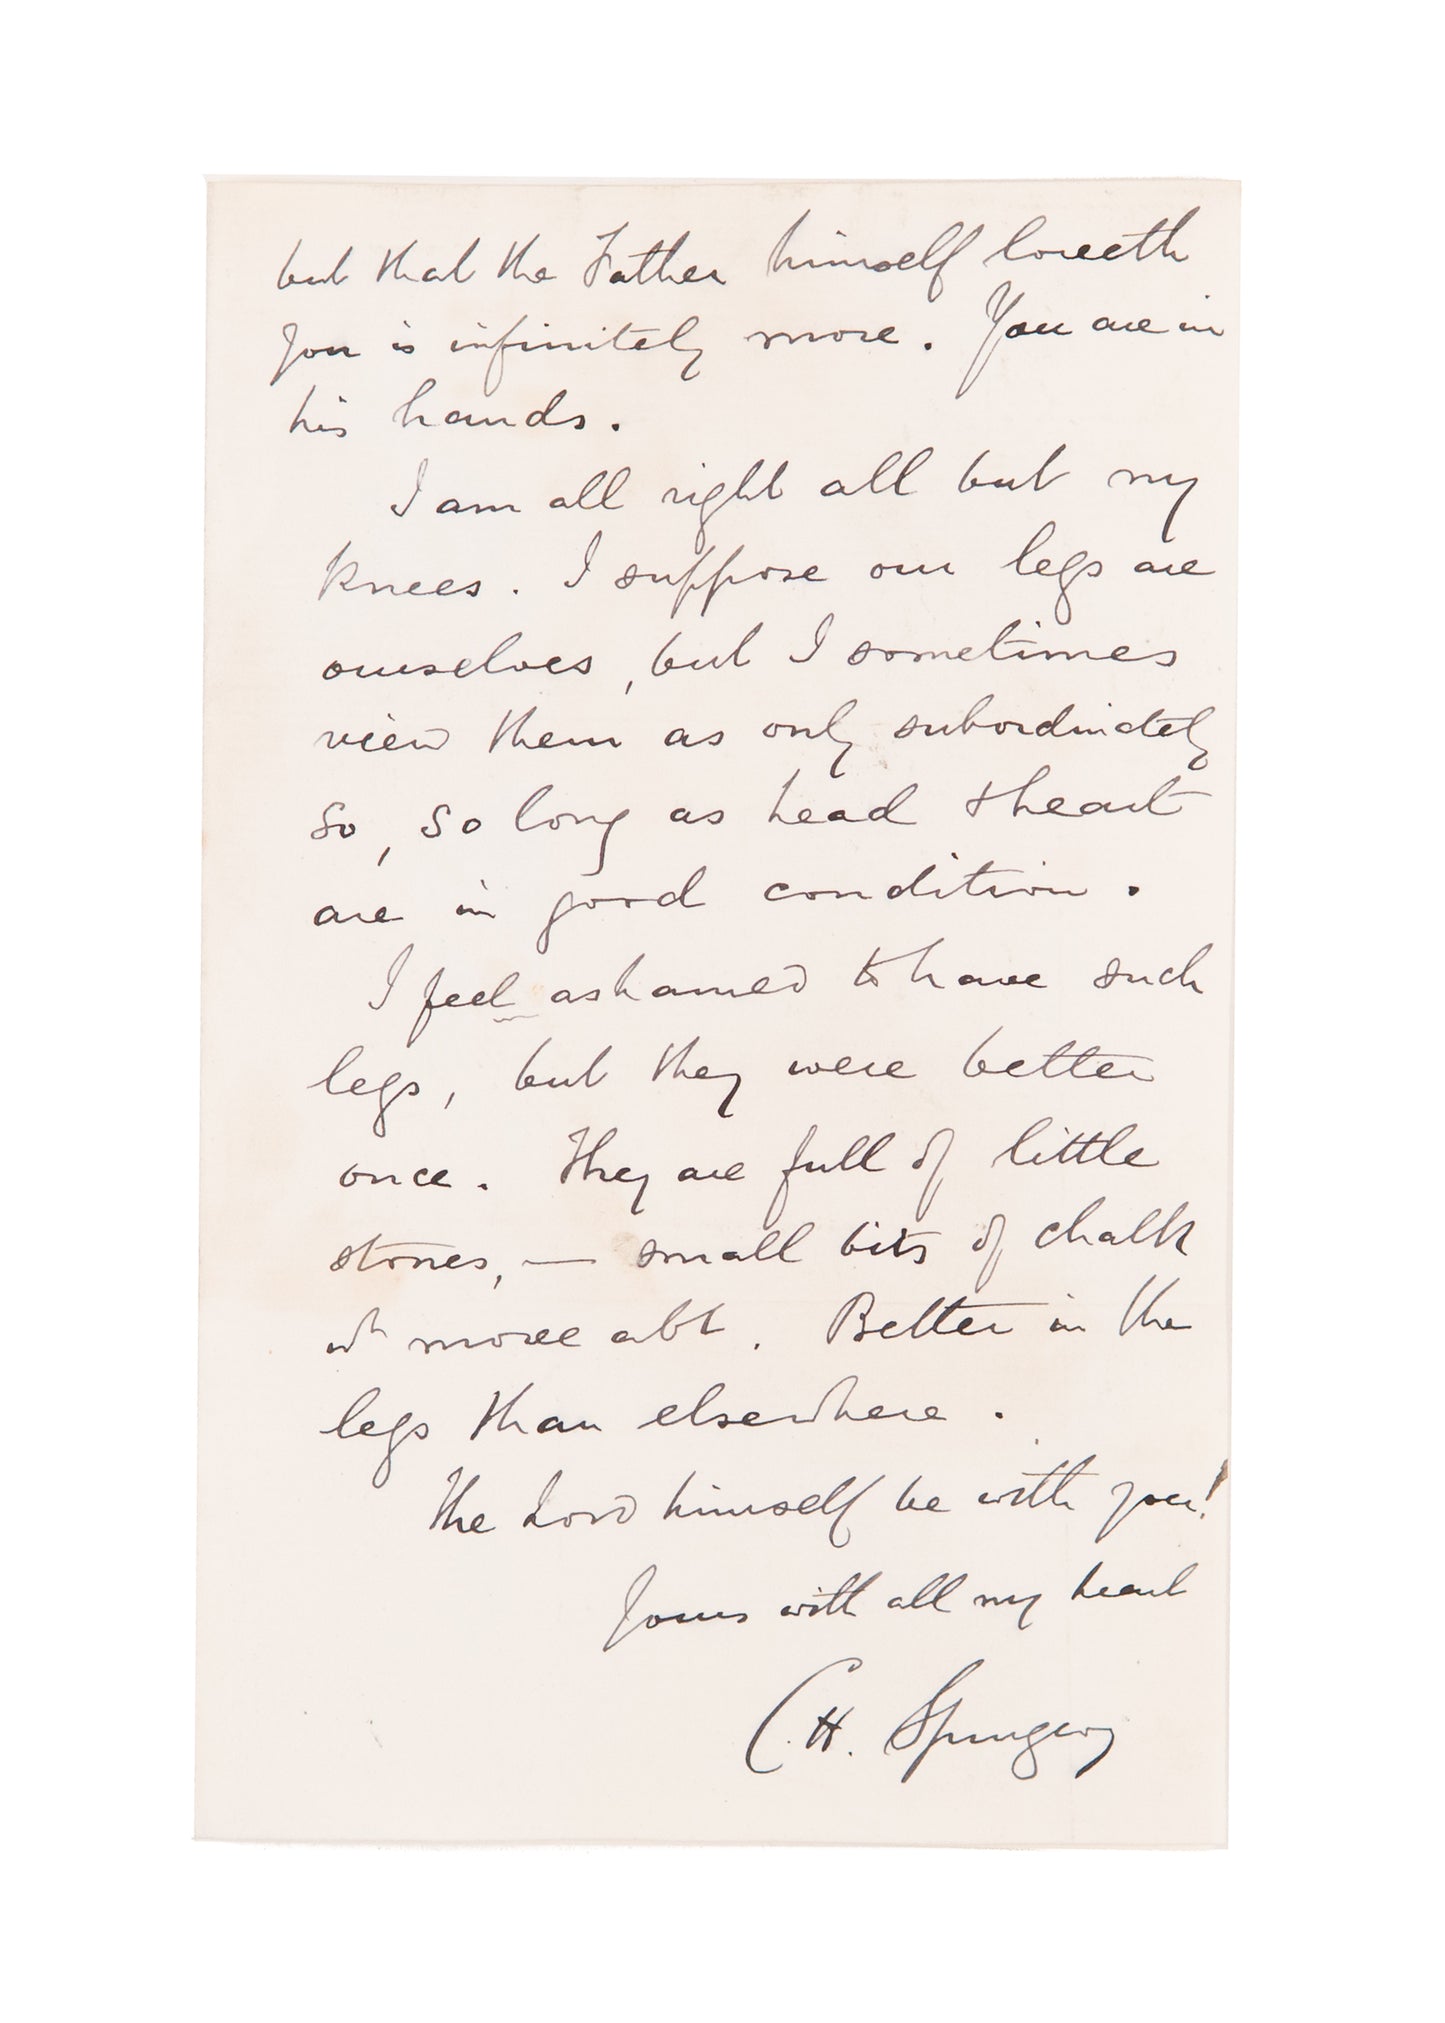 but that the Father himself loveth
you is infinitely more. You are in
his hands.
I am all right all but my
knees. I suppose our legs are
ourselves, but I sometimes
view them as only subordinately
so, so long as head & heart
are in good condition.
I feel ashamed to have such
legs, but they were better
once. They are full of little
stones, — small bits of chalk
wh move abt. Better in the
legs than elsewhere.
The Lord himself be with you!
Yours with all my heart
C. H. Spurgeon